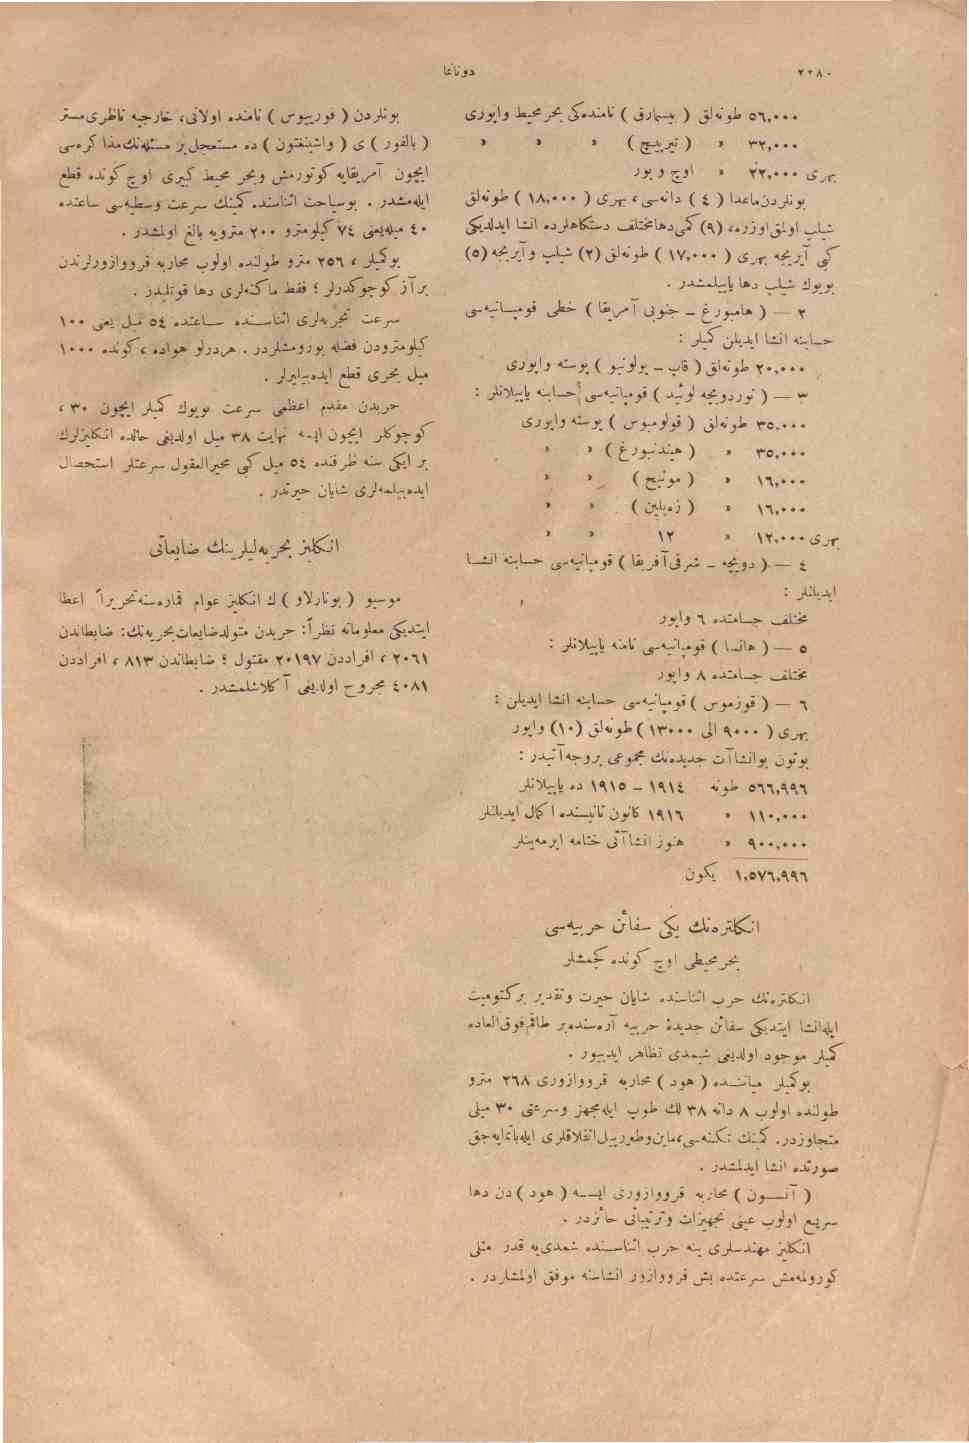 دوناغا
٢٢٨٠
٥٦,٠٠٠ طونه‌لق ( بیسمارق ) نامنده‌کی بحر محیط واپوری
٣٢,٠٠٠ » ( تیرپیچ ) » » »
بهری ٢٢,٠٠٠ » اوچ وپور
بونلردن ماعدا ( ٤ ) دانه‌سی، بهری ( ١٨,٠٠٠ ) طونه‌لق
شیلپ اولمق اوزره، (٩) کمی دها مختلف دستکاهلرده انشا ایدلدیکی
کبی آیریجه بهری ( ١٧,٠٠٠ ) طونه‌لق (٢) شیلپ و آیریجه (٥)
بویوك شیلپ دها یاپیلمشدر .
٢ — ( هامبورغ – جنوبی آمریقا ) خطی قومپانیه‌سی
حسابنه انشا ایدیلن کمیلر :
٢٠,٠٠٠ طونه‌لق ( قاپ – پولونیو ) پوسته واپوری
٣ — ( نوردویچه لوئید ) قومپانیه‌سی حسابنه یاپیلانلر :
٣٥,٠٠٠ طونه‌لق ( قولومبوس ) پوسته واپوری
٣٥,٠٠٠ » ( هیندنبورغ ) » »
١٦,٠٠٠ » ( مونیخ ) » »
١٦,٠٠٠ » ( زه‌پلین ) » »
بهری ١٢,٠٠٠ » ١٢ » »
٤ — ( دویچه – شرقی آفریقا ) قومپانیه‌سی حسابنه انشا
ایدیلنلر :
مختلف جسامتده ٦ واپور
٥ — ( هانسا ) قومپانیه‌سی نامنه یاپیلانلر :
مختلف جسامتده ٨ واپور
٦ — ( قوزموس ) قومپانیه‌سی حسابنه انشا ایدیلن :
بهری ( ٩٠٠٠ الی ١٣٠٠٠ ) طونه‌لق (١٠) واپور
بوتون بو انشاآت جدیده‌نك مجموعی بروجه آتیدر :
٥٦٦,٩٩٦ طونه ١٩١٤ – ١٩١٥ ده یاپیلانلر
١١٠,٠٠٠ » ١٩١٦ کانون ثانیسنده اکمال ایدیلنلر
٩٠٠,٠٠٠ » هنوز انشاآتی ختامه ایرمه‌ینلر
١,٥٧٦,٩٩٦ یکون
انکلتره‌نك یکی سفائن حربیه‌سی
بحر محیطی اوچ کونده کچمشلر
انکلتره‌نك حرب اثناسنده شایان حیرت وتقدیر برکتومیت
ایله انشا ایتدیکی سفائن جدیدهٔ حربیه آره‌سنده بر طاقم فوق العاده
کمیلر موجود اولدیغی شیمدی تظاهر ایدیور .
بوکمیلر میاننده ( هود ) محاربه قرووازوری ٢٦٨ مترو
طولنده اولوب ٨ دانه ٣٨ لك طوپ ایله مجهز وسرعتی ٣٠ میلی
متجاوزدر. کمینك تکنه‌سی، ماین وطورپیل انفلاقلری ایله باتمایه‌جق
صورتده انشا ایدلمشدر .
( آنسون ) محاربه قرووازوری ایسه ( هود ) دن دها
سریع اولوب عینی تجهیزات وترتیباتی حائزدر .
انکلیز مهندسلری ینه حرب اثناسنده شمدی‌یه قدر مثلی
کورولمه‌مش سرعتده بش قرووازور انشاسنه موفق اولمشلردر .
بونلردن ( فوریوس ) نامنده اولانی، خارجیه ناظری مستر
( بالفور ) ی ( واشینغتون ) ده مستعجل بر مسئله‌نك مذاکره‌سی
ایچون آمریقایه کوتورمش وبحر محیط کبیری اوچ کونده قطع
ایله‌مشدر . بوسیاحت اثناسنده کمینك سرعت وسطیه‌سی ساعتده
٤٠ میله یعنی ٧٤ کیلومترو ٢٠٠ مترویه بالغ اولمشدر .
بوکمیلر، ٢٥٦ مترو طولنده اولوب محاربه قرووازورلرندن
برآز کوچوکدرلر ؛ فقط ماکنه‌لری دها قوتلیدر .
سرعت تجربه‌لری اثناسنده ساعتده ٥٤ میل یعنی ١٠٠
کیلومترودن فضله یورومشلردر . هردرلو هواده ، کونده ١٠٠٠
میل بحری قطع ایده‌بیلیرلر .
حربدن مقدم اعظمی سرعت بویوك کمیلر ایچون ٣٠ ،
کوچوکلر ایچون ایسه نهایت ٣٨ میل اولدیغی حالده انکلیزلرك
بر ایکی سنه ظرفنده ٥٤ میل کبی محیرالعقول سرعتلر استحصال
ایده‌بیلمه‌لری شایان حیرتدر .
انکلیز بحریه‌لیلرینك ضایعاتی
موسیو ( بونارلاو ) ك انکلیز عوام قماره‌سنه تحریراً اعطا
ایتدیکی معلوماته نظراً : حربدن متولد ضایعات بحریه‌نك : ضابطاندن
٢٠٦١ ، افراددن ٢٠١٩٧ مقتول ؛ ضابطاندن ٨١٣ ، افراددن
٤٠٨١ مجروح اولدیغی آکلاشلمشدر .